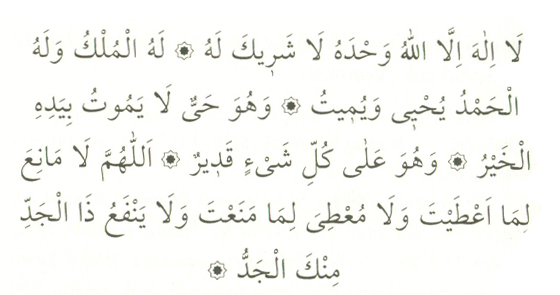 لَا اِلٰهَ اِلَّا اللّٰهُ وَحْدَهُ لَا شَرِيكَ لَهُ ۞ لَهُ الْمُلْكُ وَلَهُ
الْحَمْدُ يُحْيِى وَيُمِيتُ ۞ وَهُوَ حَىٌّ لَا يَمُوتُ بِيَدِهِ
الْخَيْرُ ۞ وَهُوَ عَلٰى كُلِّ شَىْءٍ قَدِيرٌ ۞ اَللّٰهُمَّ لَا مَانِعَ
لِمَا اَعْطَيْتَ وَلَا مُعْطِىَ لِمَا مَنَعْتَ وَلَا يَنْفَعُ ذَا الْجَدِّ
مِنْكَ الْجَدُّ ۞